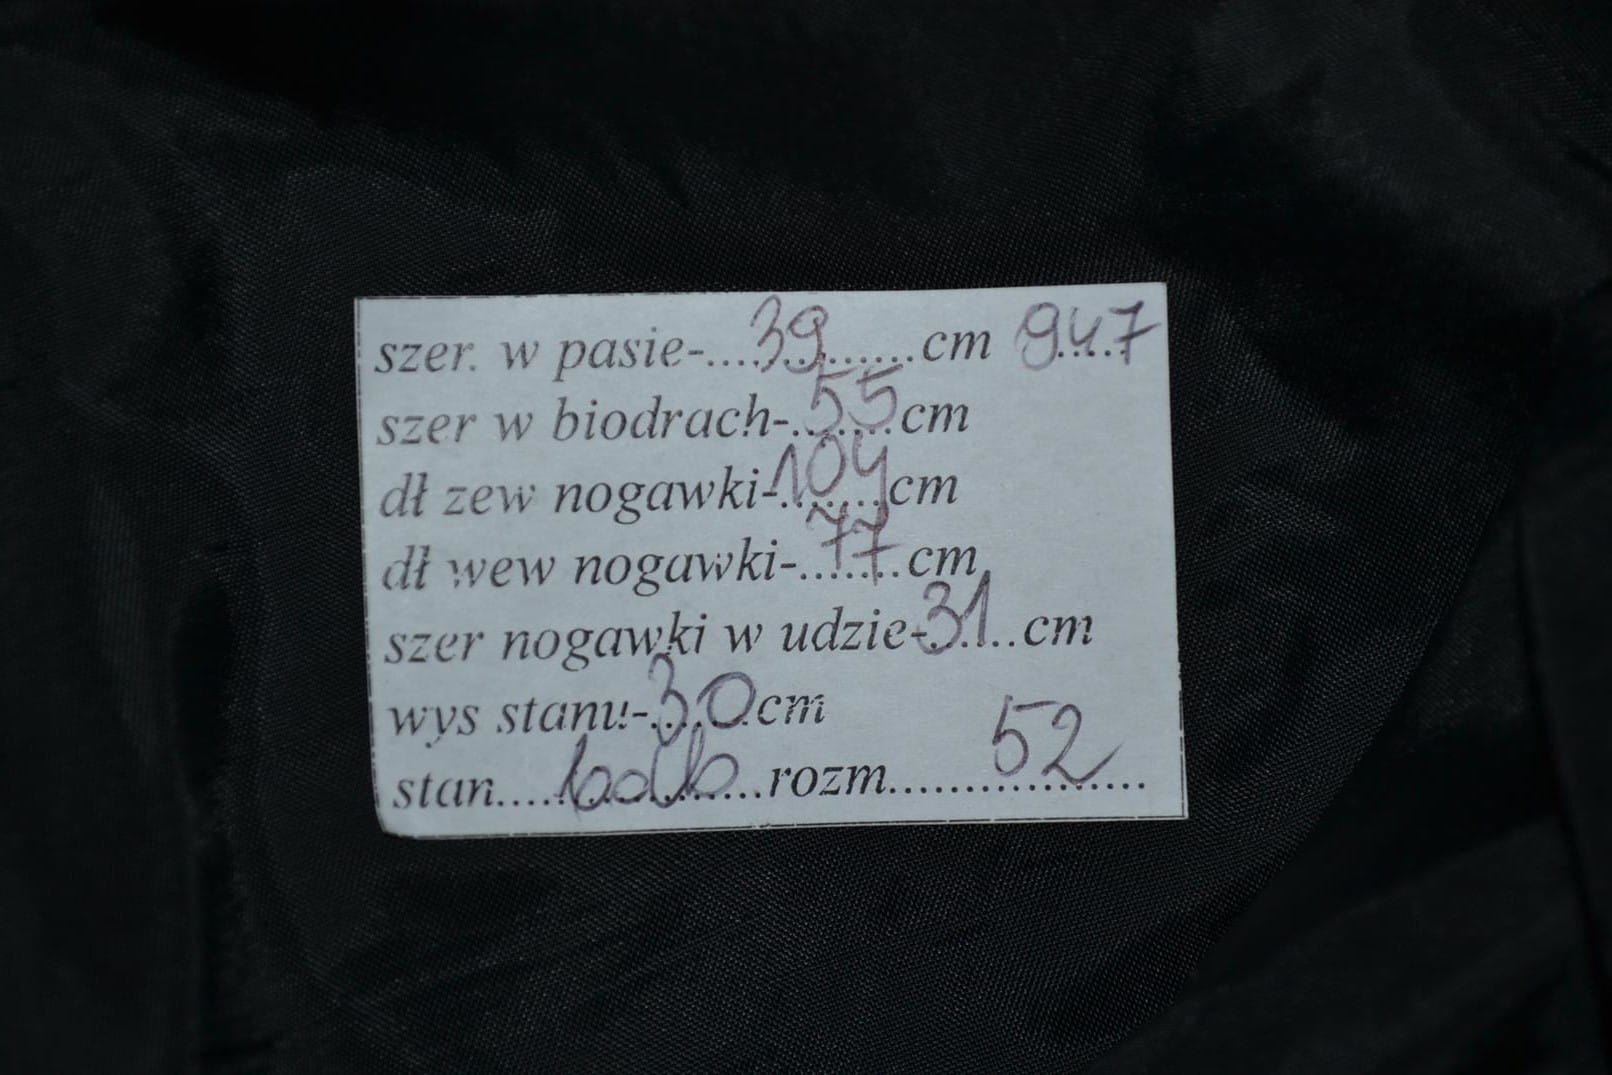 szer. w pasie-....39.......cm 947
szer w biodrach-.55.cm
dł zew nogawki-104cm
dł wew nogawki-.77.cm
szer nogawki w udzie-31..cm
wys stanu-.30cm
stan....bdb...rozm.......52...